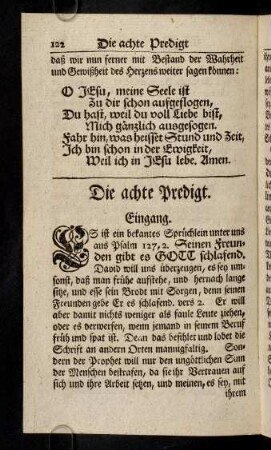 122 Die achte Predigt
daß wir nun ferner mit Bestand der Wahrheit
und Gewißheit des Herzens weiter sagen können:
O JEsu, meine Seele ist
Zu dir schon aufgeflogen,
Du hast, weil du voll Liebe bist,
Mich gänzlich ausgesogen.
Fahr hin, was heisset Stund und Zeit,
Ich bin schon in der Ewigkeit,
Weil ich in JEsu lebe. Amen.
Die achte Predigt.
Eingang.
ES ist ein bekantes Sprüchlein unter uns
aus Psalm 127, 2. Seinen Freun-
den gibt es GOTT schlafend.
David will uns überzeugen, es sey um-
sonst, daß man frühe aufstehe, und hernach lange
sitze, und esse sein Brodt mit Sorgen, denn seinen
Freunden gebe Er es schlafend. vers 2. Er will
aber damit nichts weniger als faule Leute ziehen,
oder es verwerfen, wenn jemand in seinem Beruf
früh und spat ist. Denn das befihlet und lobet die
Schrift an andern Orten mannigfaltig. Son-
dern der Prophet will nur den ungöttlichen Sinn
der Menschen bestrafen, da sie ihr Vertrauen auf
sich und ihre Arbeit setzen, und meinen, es sey, mit
ihrem